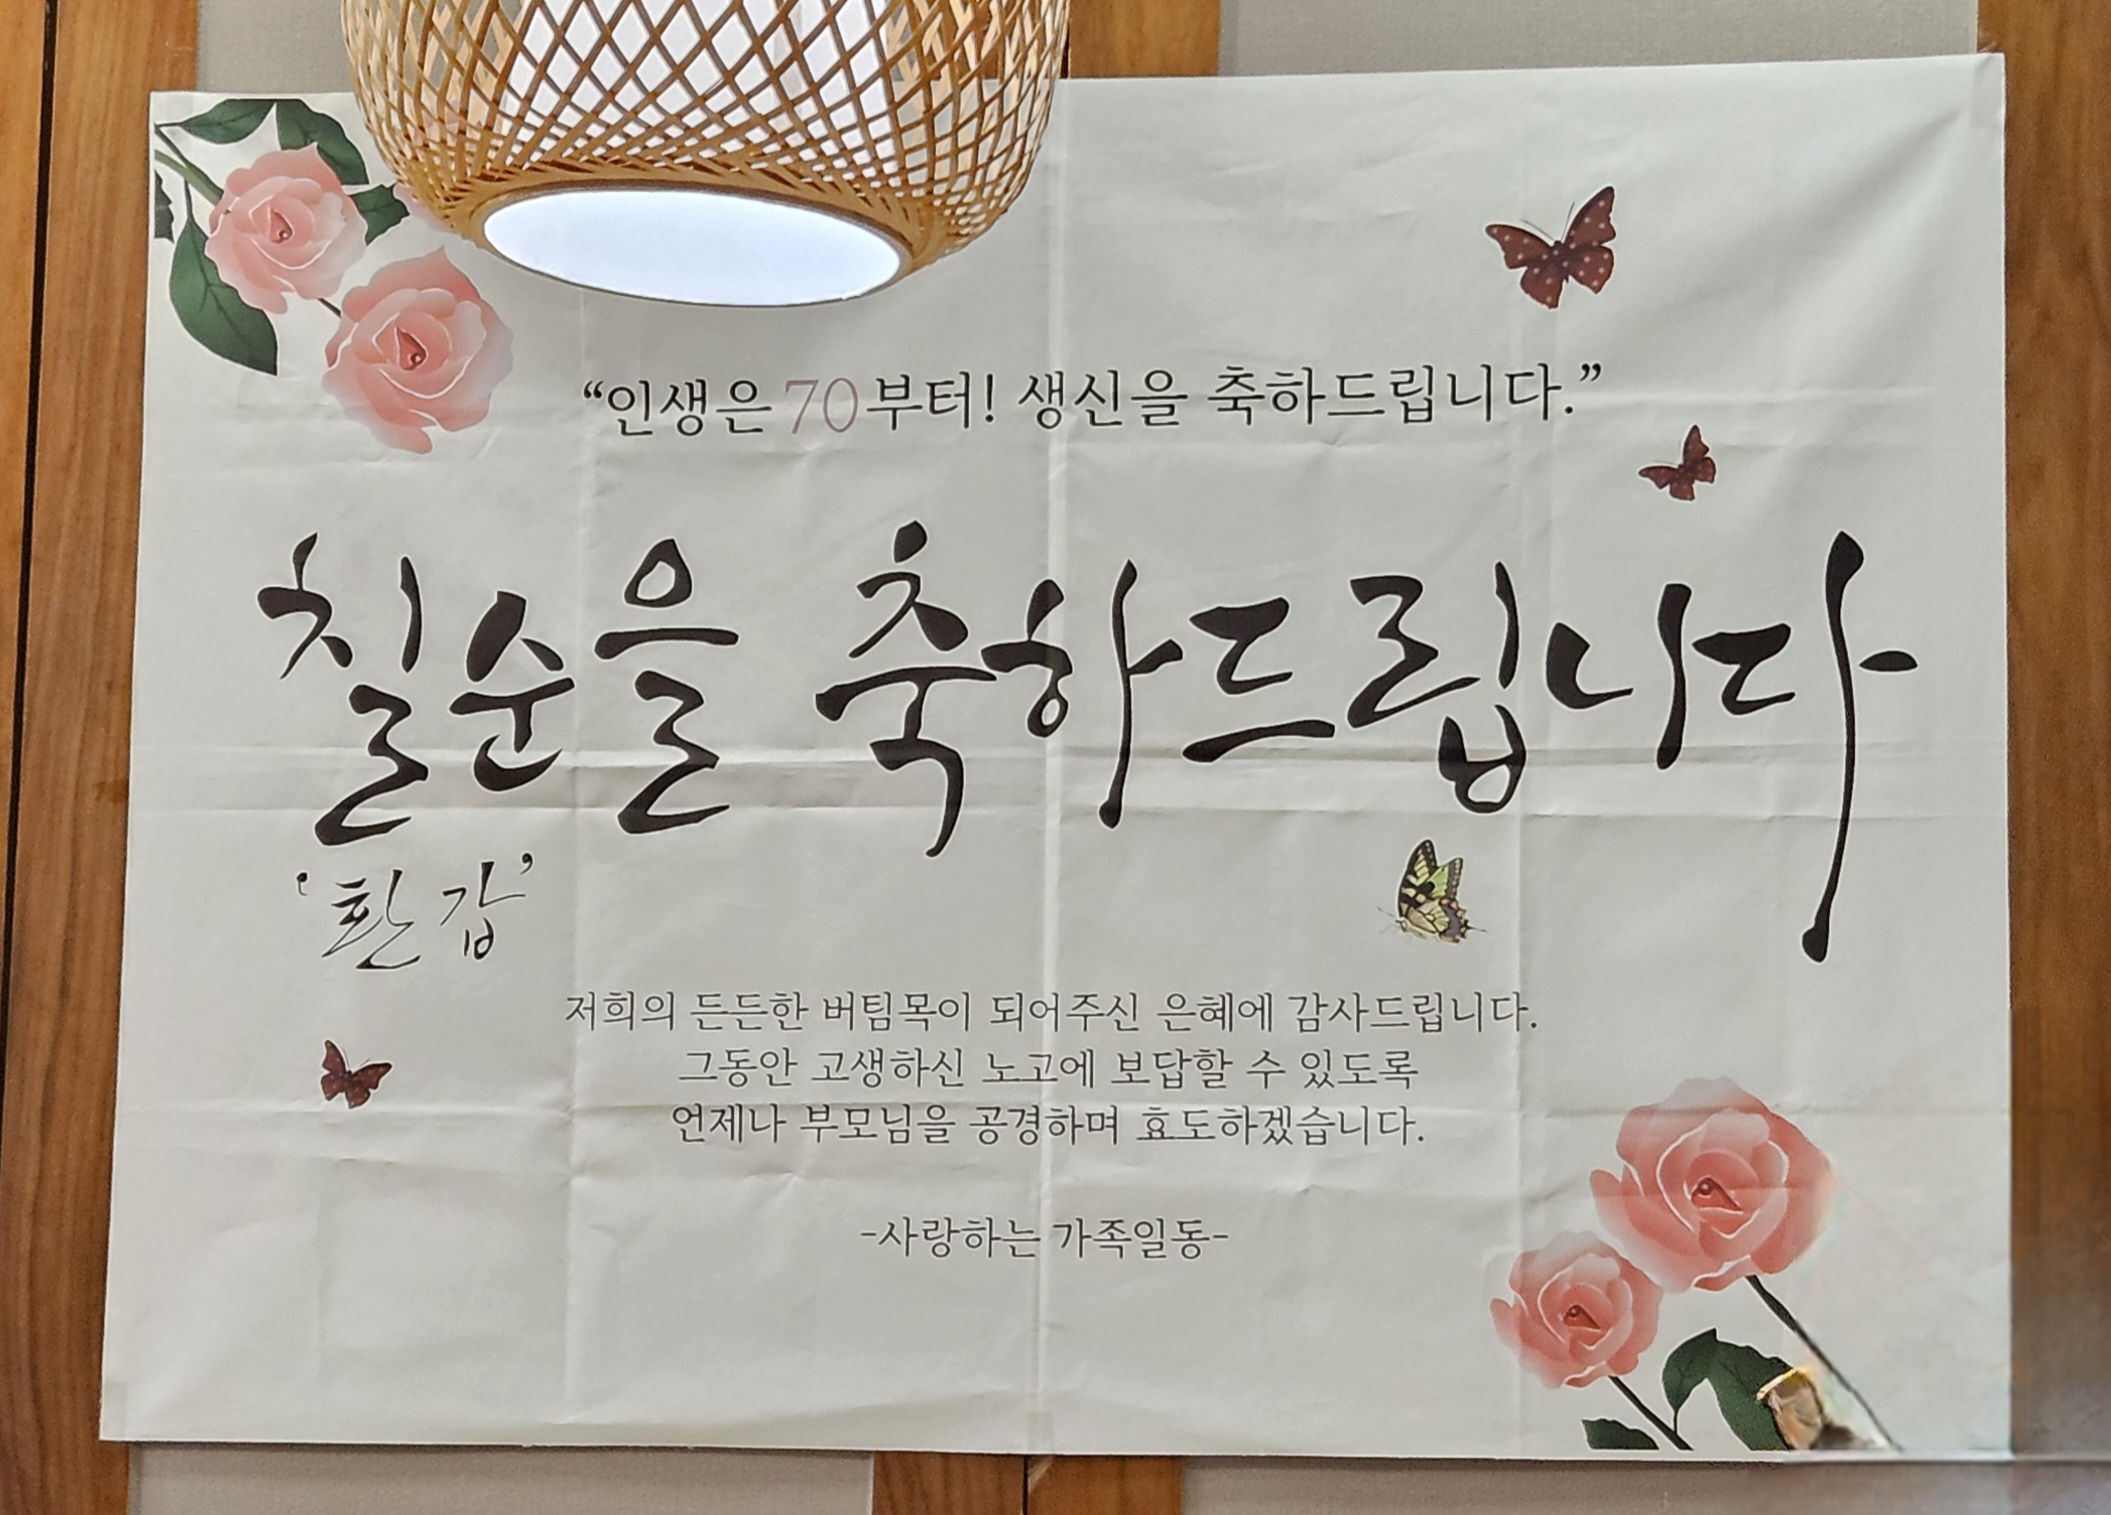 “인생은 70부터! 생신을 축하드립니다.”
칠순을 축하드립니다
‘환갑’
저희의 든든한 버팀목이 되어주신 은혜에 감사드립니다.
그동안 고생하신 노고에 보답할 수 있도록
언제나 부모님을 공경하며 효도하겠습니다.
-사랑하는 가족일동-